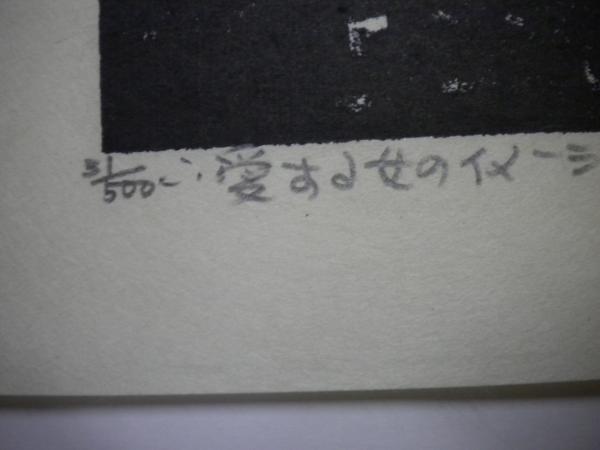 31/500 愛する女のイメー